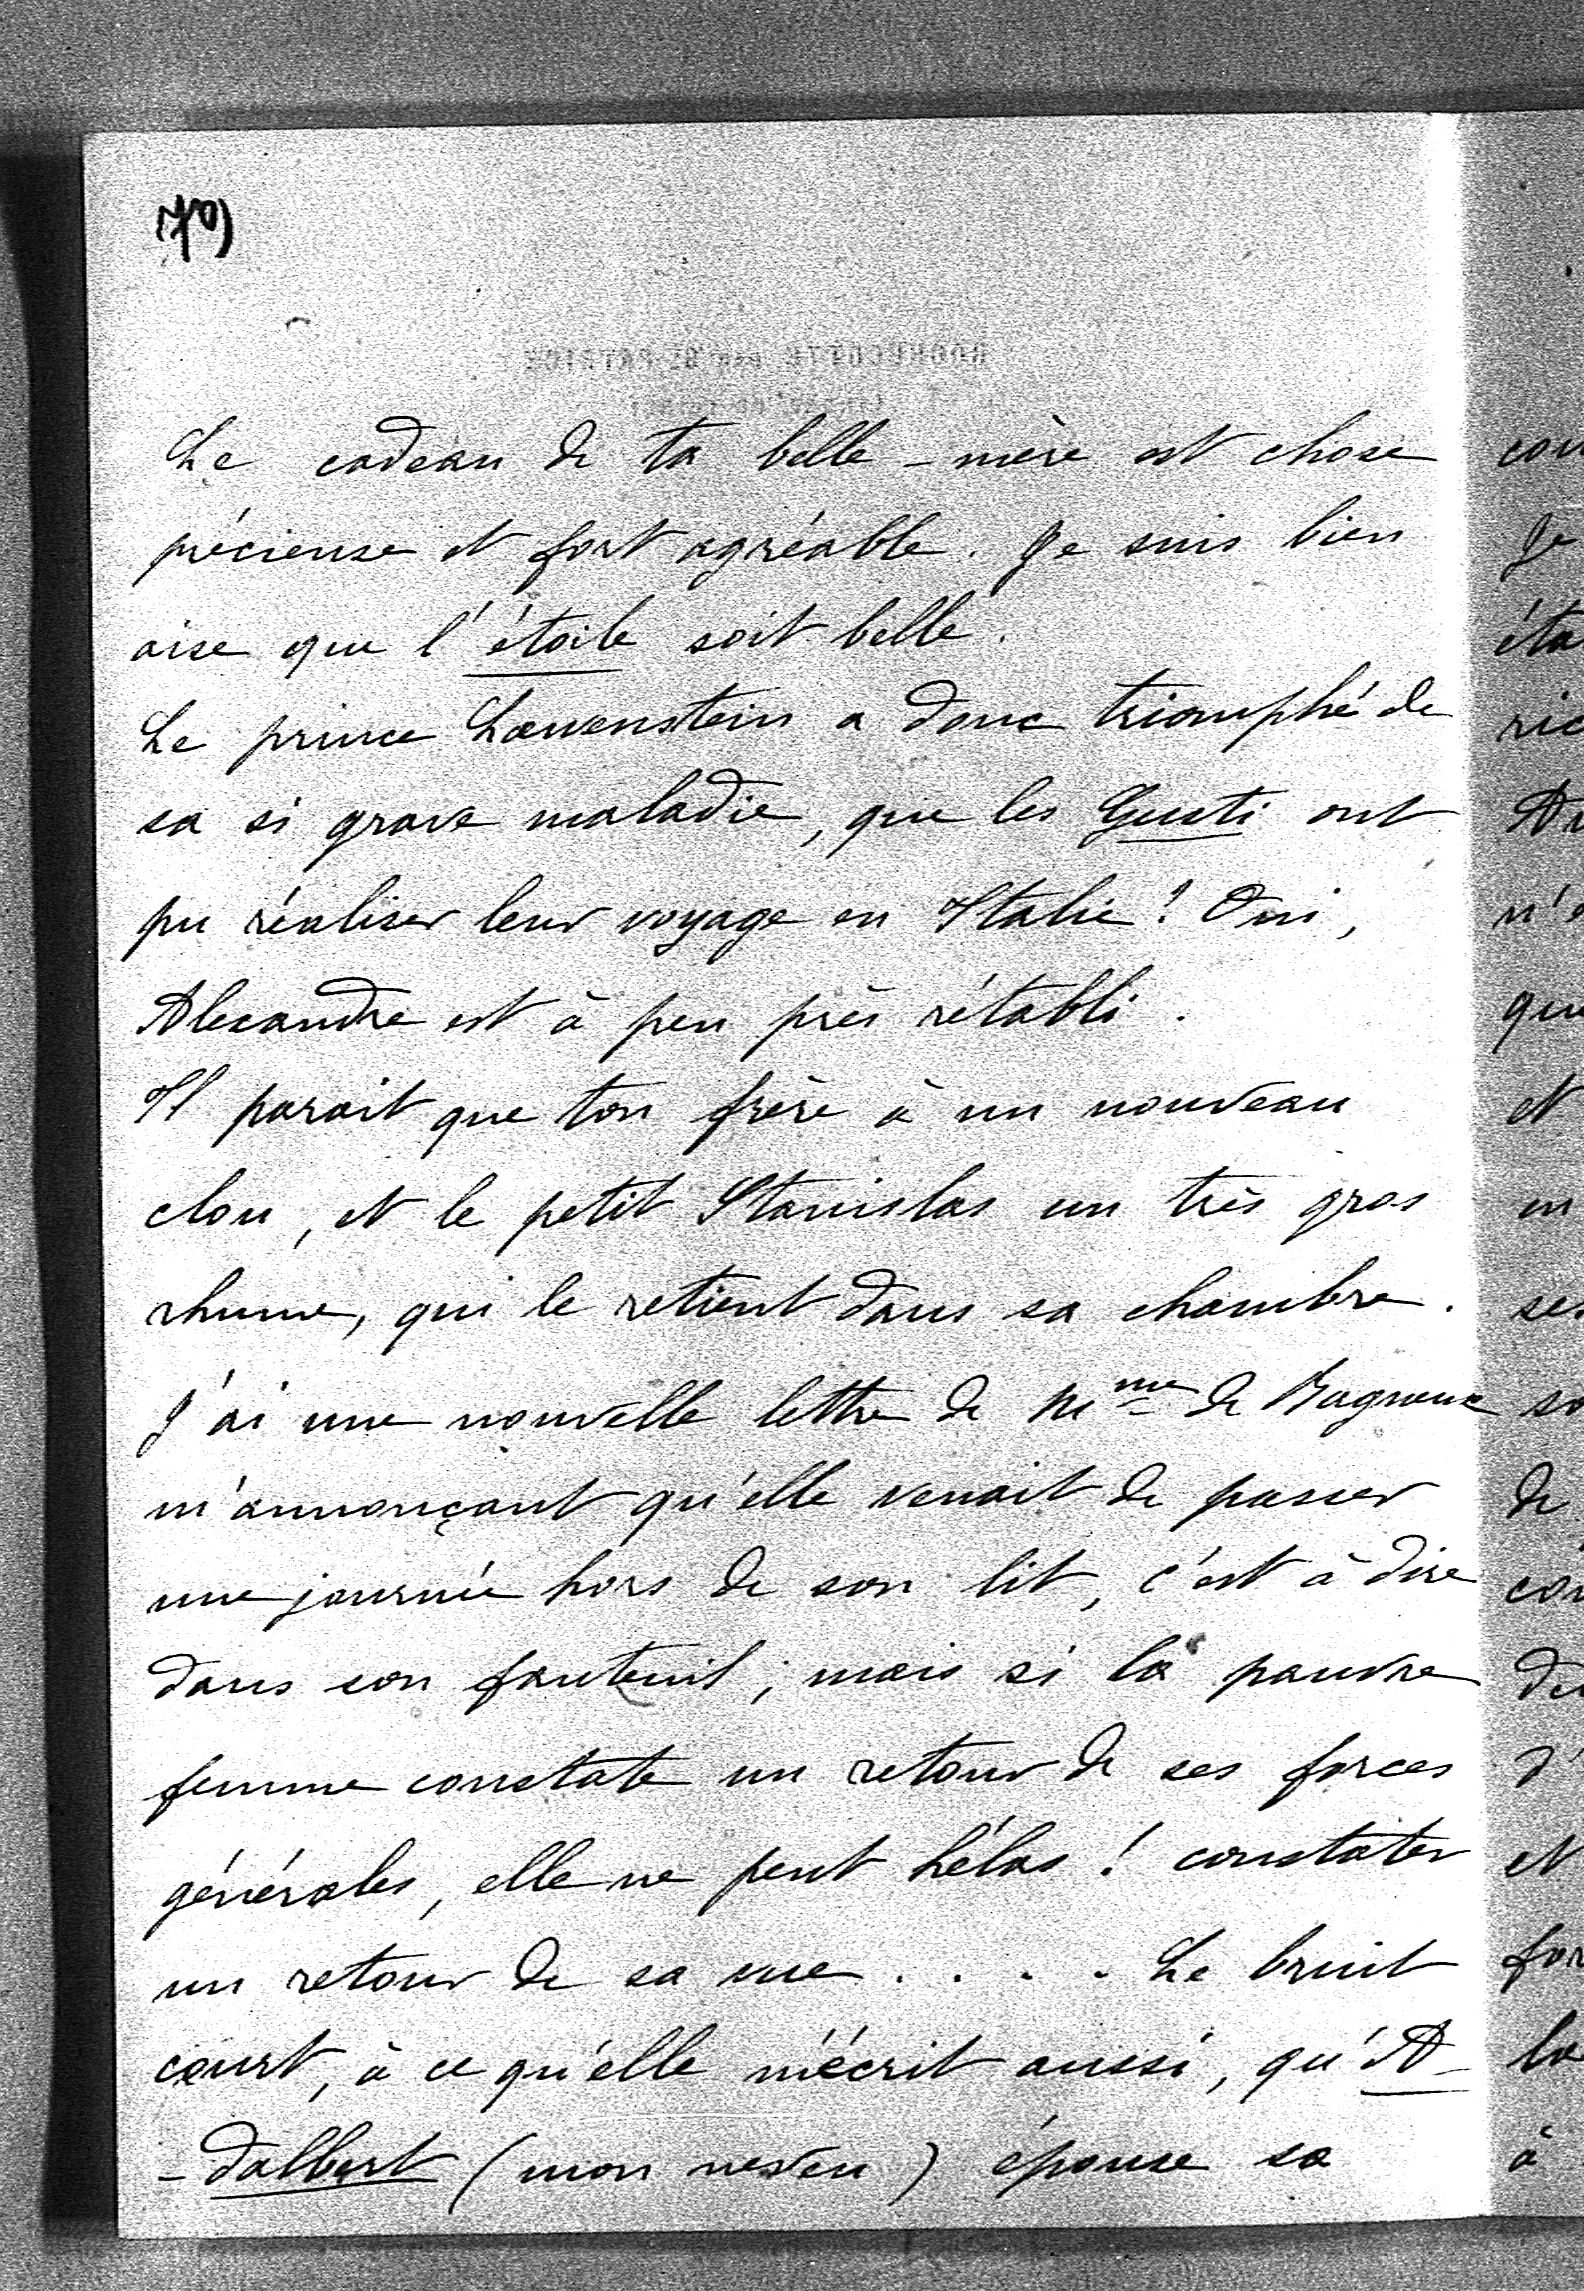 Le cadeau de ta belle-mère est chose
précieuse et fort agréable. Je suis bien
aise que l'étoile soit belle.
Le prince Lœwenstein a donc triomphé de
sa si grave maladie, que les Gusti ont
pu réaliser leur voyage en Italie? Oui,
Alexandre est à peu près rétabli.
Il parait que ton frère à un nouveau
clou, et le petit Stanislas un très gros
rhume, qui le retient dans sa chambre.
J'ai une nouvelle lettre de Mme de Bagneux
m'annonçant qu'elle venait de passer
une journée hors de son lit, c'est à dire
dans son fauteuil; mais si la pauvre
femme constate un retour de ses forces
générales, elle ne peut hélas! constater
un retour de sa vue.... Le bruit
court, à ce qu'elle m'écrit aussi, qu'A-
-dalbert (mon neveu) épouse sa